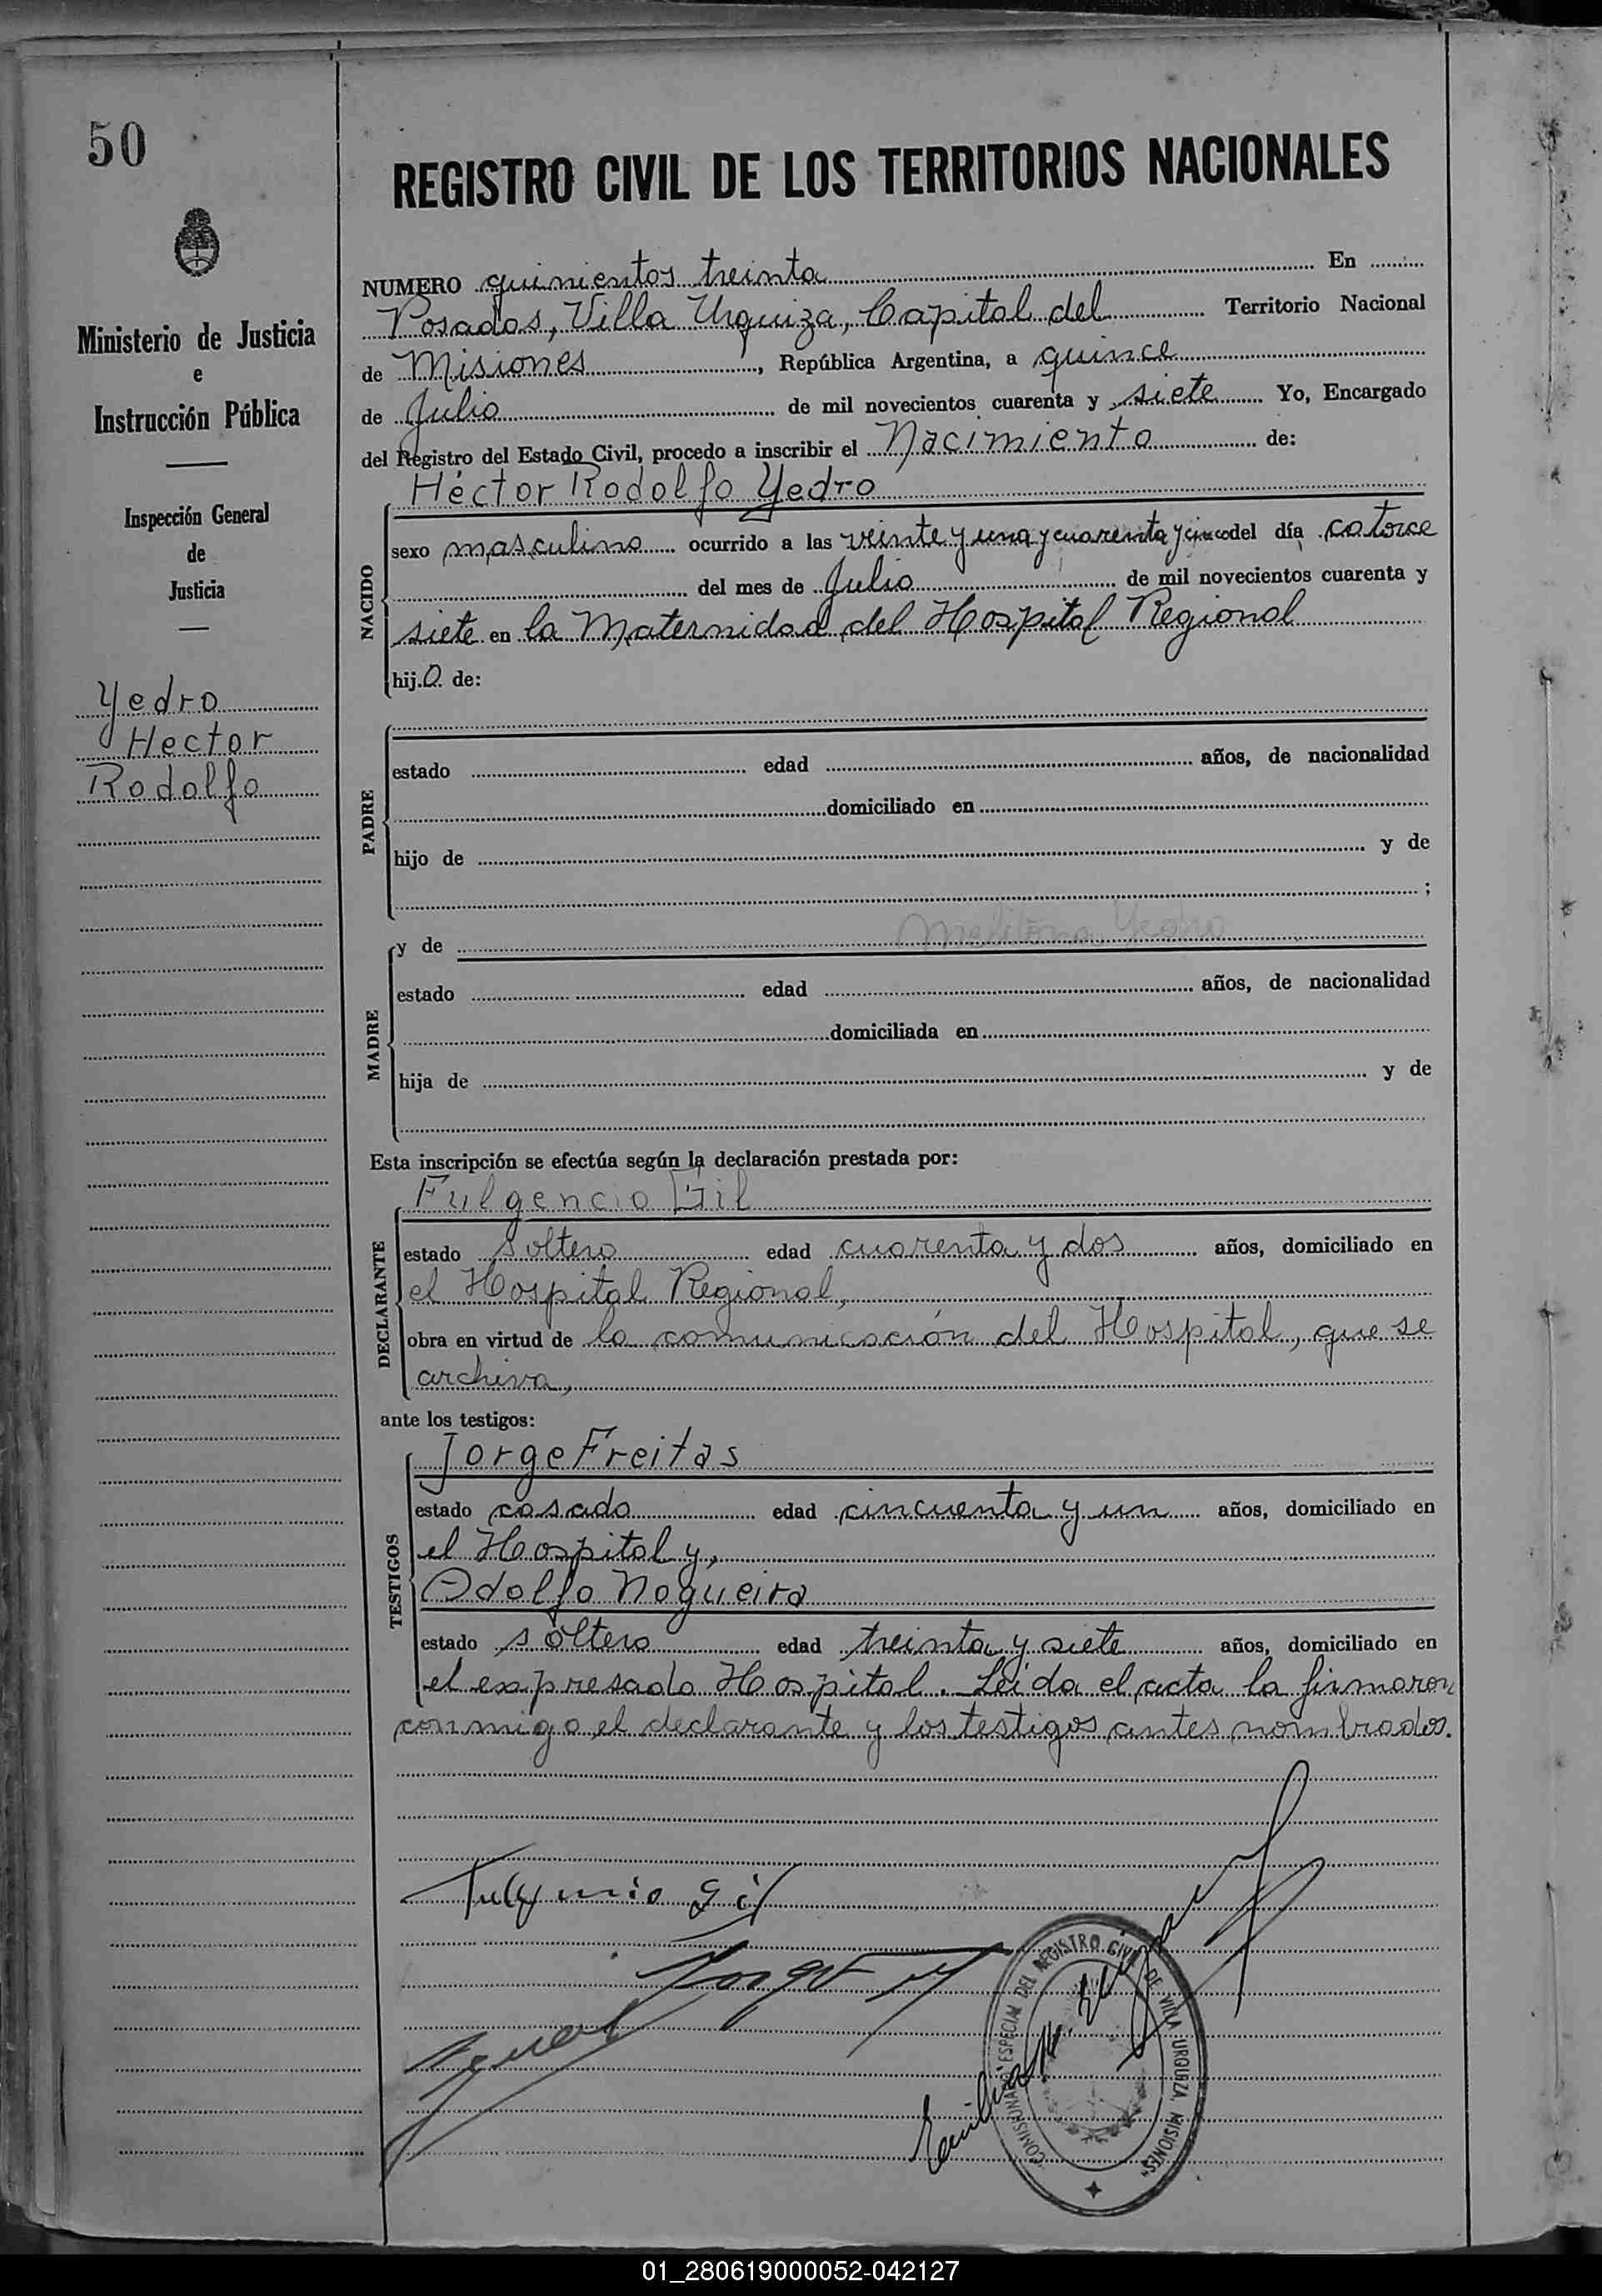 50
REGISTRO CIVIL DE LOS TERRITORIOS NACIONALES
Ministerio de Justicia
e
Instrucción Pública
Inspección General
de
Justicia
Yedro
Hector
Rodolfo
NUMERO quinientos treinta En
Posadas, Villa Urquiza, Capital del Territorio Nacional
de Misiones, República Argentina, a quince
de Julio de mil novecientos cuarenta y siete Yo, Encargado
del Registro del Estado Civil, procedo a inscribir el Nacimiento de:
Héctor Rodolfo Yedro
NACIDO
sexo masculino ocurrido a las veinte y una y cuarenta y cinco del día catorce
del mes de Julio de mil novecientos cuarenta y
siete en la Maternidad del Hospital Regional
hijo de:
PADRE
estado edad años, de nacionalidad
domiciliado en
hijo de y de
;
MADRE
y de Melitona Yedro
estado edad años, de nacionalidad
domiciliada en
hija de y de
Esta inscripción se efectúa según la declaración prestada por:
DECLARANTE
Fulgencio Gil
estado soltero edad cuarenta y dos años, domiciliado en
el Hospital Regional,
obra en virtud de la comunicación del Hospital, que se
archiva,
ante los testigos:
TESTIGOS
Jorge Freitas
estado casado edad cincuenta y un años, domiciliado en
el Hospital y,
Adolfo Nogueira
estado soltero edad treinta y siete años, domiciliado en
el expresado Hospital. Leída el acta la firmaron
conmigo el declarante y los testigos antes nombrados.
Fulgencio Gil
COMISIONADO ESPECIAL DEL REGISTRO CIVIL DE VILLA URQUIZA, MISIONES
01_280619000052-042127